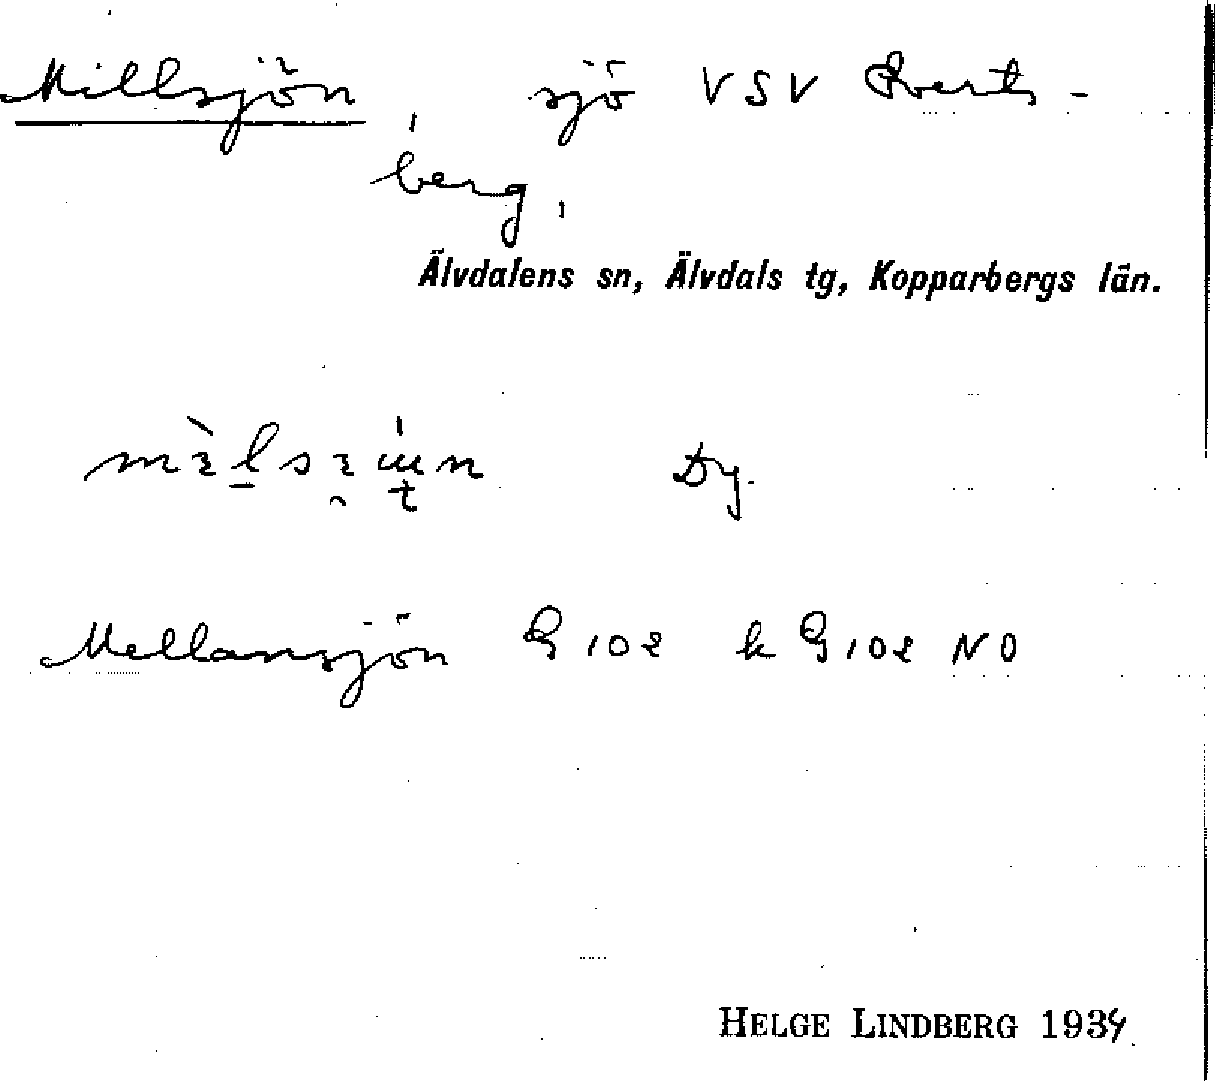 Millsjön, sjö VSV Everts-
berg,
Älvdalens sn, Älvdals tg, Kopparbergs län.
Dy.
Mellansjön G 102 k G 102 NO
HELGE LINDBERG 1934